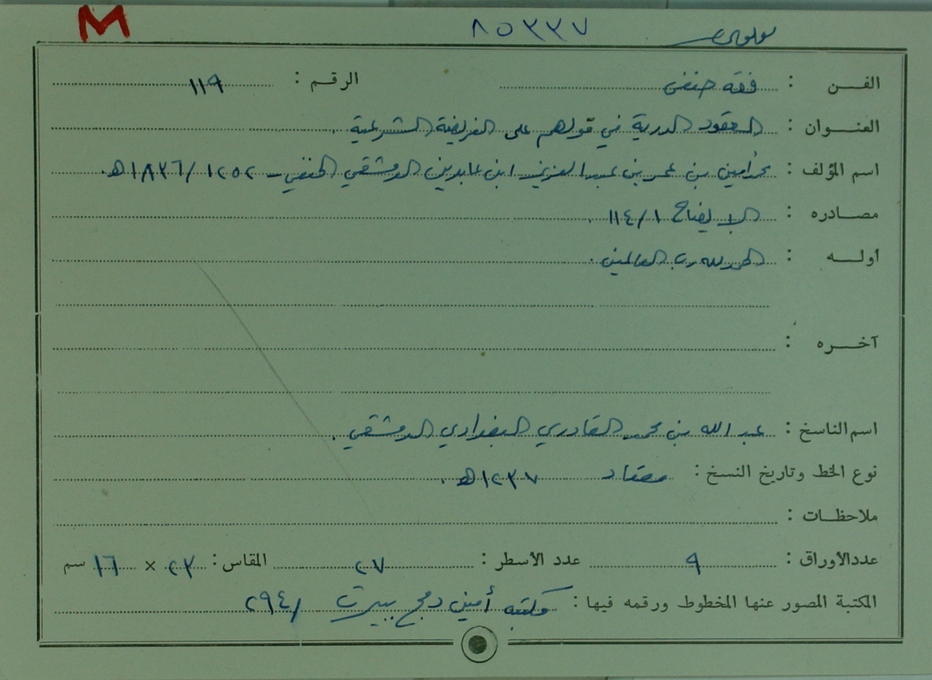 M ٨٥٣٣٧
الفن : فقه حنفي الرقم : ١١٩
العنوان : العقود الدرية في قولهم على الفريضة الشرعية .
اسم المؤلف : محمد أمين بن عمر بن عبد العزيز ابن عابدين الدمشقي الحنفي - ١٢٥٢ / ١٨٣٦هـ.
مصادره : الإيضاح ١/ ١١٤ .
أوله : الحمد لله رب العالمين .
آخره :
اسم الناسخ : عبد الله بن محمد القادري البغدادي الدمشقي .
نوع الخط وتاريخ النسخ : معتاد ١٢٣٧هـ .
ملاحظات :
عدد الأوراق : ٩ عدد الأسطر : ٢٧ المقاس : ٢٣ × ١٦ سم
المكتبة المصور عنها المخطوط ورقمه فيها : مكتبة أمين دمج ببيرت / ٢٩٤